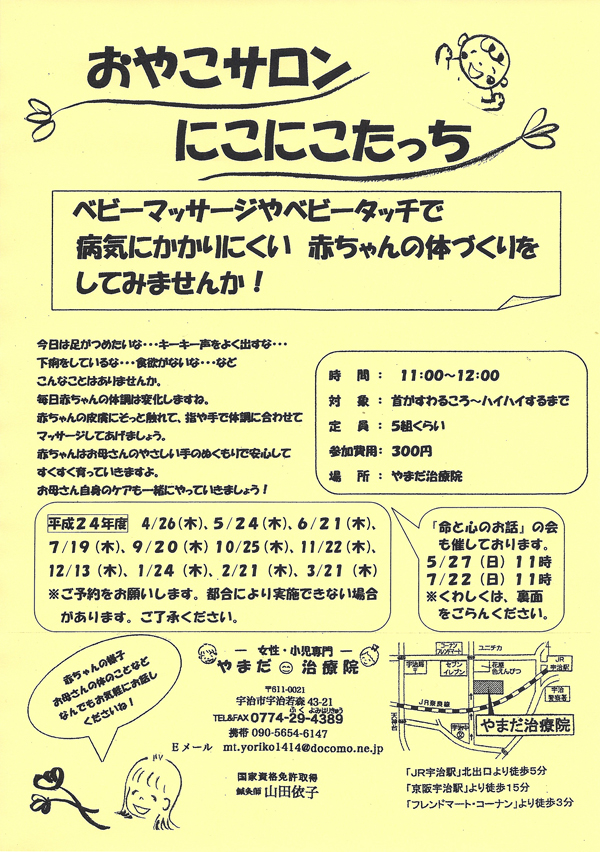 おやこサロン
にこにこたっち
ベビーマッサージやベビータッチで
病気にかかりにくい　赤ちゃんの体づくりを
してみませんか！
今日は足がつめたいな･･･キーキー声をよく出すな･･･
下痢をしているな･･･食欲がないな･･･など
こんなことはありませんか。
毎日赤ちゃんの体調は変化しますね。
赤ちゃんの皮膚にそっと触れて、指や手で体調に合わせて
マッサージしてあげましょう。
赤ちゃんはお母さんのやさしい手のぬくもりで安心して
すくすく育っていきますよ。
お母さん自身のケアも一緒にやっていきましょう！
時　間：　11:00～12:00
対　象：首がすわるころ～ハイハイするまで
定　員：5組くらい
参加費用：300円
場　所：やまだ治療院
平成２４年度　4/26(木)、5/24(木)、6/21(木)、
7/19(木)、9/20(木) 10/25(木)、11/22(木)、
12/13(木)、1/24(木)、2/21(木)、3/21(木)
※ご予約をお願いします。都合により実施できない場合
があります。ご了承ください。
「命と心のお話」の会
も催しております。
5/27（日）11時
7/22（日）11時
※くわしくは、裏面
をごらんください。
赤ちゃんの様子
お母さんの体のことなど
なんでもお気軽にお話し
くださいね！
― 女性・小児専門 ―
やまだ 治療院
〒611-0021
宇治市宇治若森 43-21
ふ く よみはりきゅう
TEL&FAX 0774-29-4389
携帯 090-5654-6147
Ｅメール　mt.yoriko1414@docomo.ne.jp
国家資格免許取得
鍼灸師 山田依子
コーナン
フレンドマート
ユニチカ
宇治郵
〒
セブン
イレブン
花屋
色えんぴつ
JR
宇治駅
JR奈良線
宇治
警察署
天神台
宇治中
文
やまだ治療院
「JR宇治駅」北出口より徒歩5分
「京阪宇治駅」より徒歩15分
「フレンドマート・コーナン」より徒歩3分